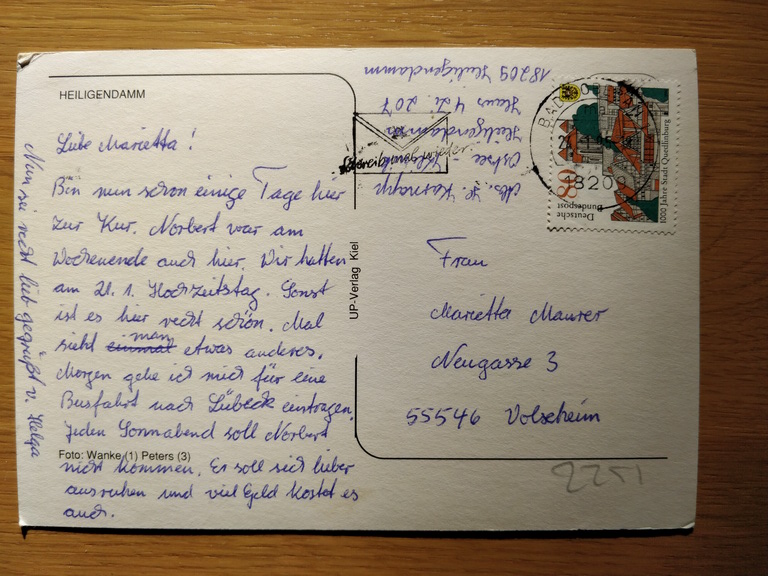 HEILIGENDAMM
Liebe Marietta!
Bin nun schon einige Tage hier
zur Kur. Norbert war am
Wochenende auch hier. Wir hatten
am 21. 1. Hochzeitstag. Sonst
ist es hier recht schön. Mal
sieht man etwas anderes.
Morgen gehe ich mich für eine
Busfahrt nach Lübeck eintragen.
Jeden Sonnabend soll Norbert
nicht kommen. Er soll sich lieber
ausruhen und viel Geld kostet es
auch.
Nun sie recht lieb gegrüßt v. Helga
Foto: Wanke (1) Peters (3)
UP-Verlag Kiel
Abs. H.
Ostsee-
Heiligendamm
Haus 4 Zi. 207
18209 Heiligendamm
Schreib mal wieder
BAD DOBERAN
18209
80
Deutsche
Bundespost
1000 Jahre Stadt Quedlinburg
Frau
Marietta Maurer
Neugasse 3
55546 Volxheim
2251